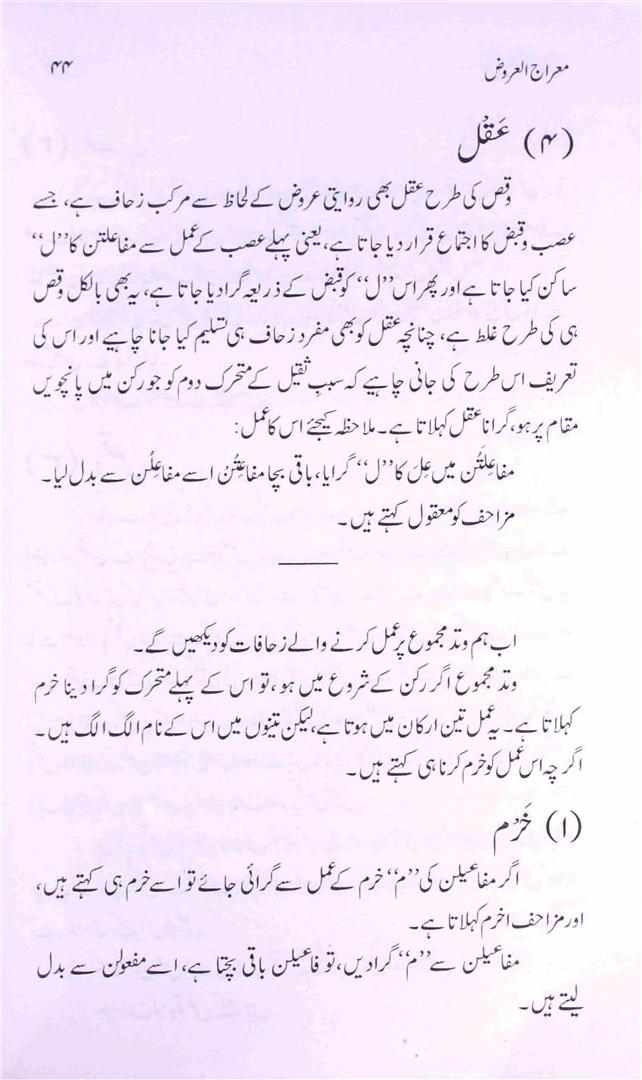 معراج العروض ۴۴
(۴) عَقْل
وقص کی طرح عقل بھی روایتی عروض کے لحاظ سے مرکب زحاف ہے، جسے
عصب و قبض کا اجتماع قرار دیا جاتا ہے، یعنی پہلے عصب کے عمل سے مفاعلتن کا ’’ل‘‘
ساکن کیا جاتا ہے اور پھر اس ’’ل‘‘ کو قبض کے ذریعہ گرادیا جاتا ہے، یہ بھی بالکل وقص
ہی کی طرح غلط ہے، چنانچہ عقل کو بھی مفرد زحاف ہی تسلیم کیا جانا چاہیے اور اس کی
تعریف اس طرح کی جانی چاہیے کہ سببِ ثقیل کے متحرک دوم کو جو رکن میں پانچویں
مقام پر ہو، گرانا عقل کہلاتا ہے۔ ملاحظہ کیجئے اس کا عمل:
مفاعِلَتُن میں عِلَ کا ’’ل‘‘ گرایا، باقی بچا مفاعِتُنْ اسے مفاعِلُن سے بدل لیا۔
مزاحف کو معقول کہتے ہیں۔
اب ہم وتد مجموع پر عمل کرنے والے زحافات کو دیکھیں گے۔
وتد مجموع اگر رکن کے شروع میں ہو، تو اس کے پہلے متحرک کو گرا دینا خرم
کہلاتا ہے۔ یہ عمل تین ارکان میں ہوتا ہے، لیکن تینوں میں اس کے نام الگ الگ ہیں۔
اگر چہ اس عمل کو خرم کرنا ہی کہتے ہیں۔
(۱) خَرْم
اگر مفاعیلن کی ’’م‘‘ خرم کے عمل سے گرائی جائے تو اسے خرم ہی کہتے ہیں،
اور مزاحف اخرم کہلاتا ہے۔
مفاعیلن سے ’’م‘‘ گرادیں، تو فاعیلن باقی بچتا ہے، اسے مفعولن سے بدل
لیتے ہیں۔